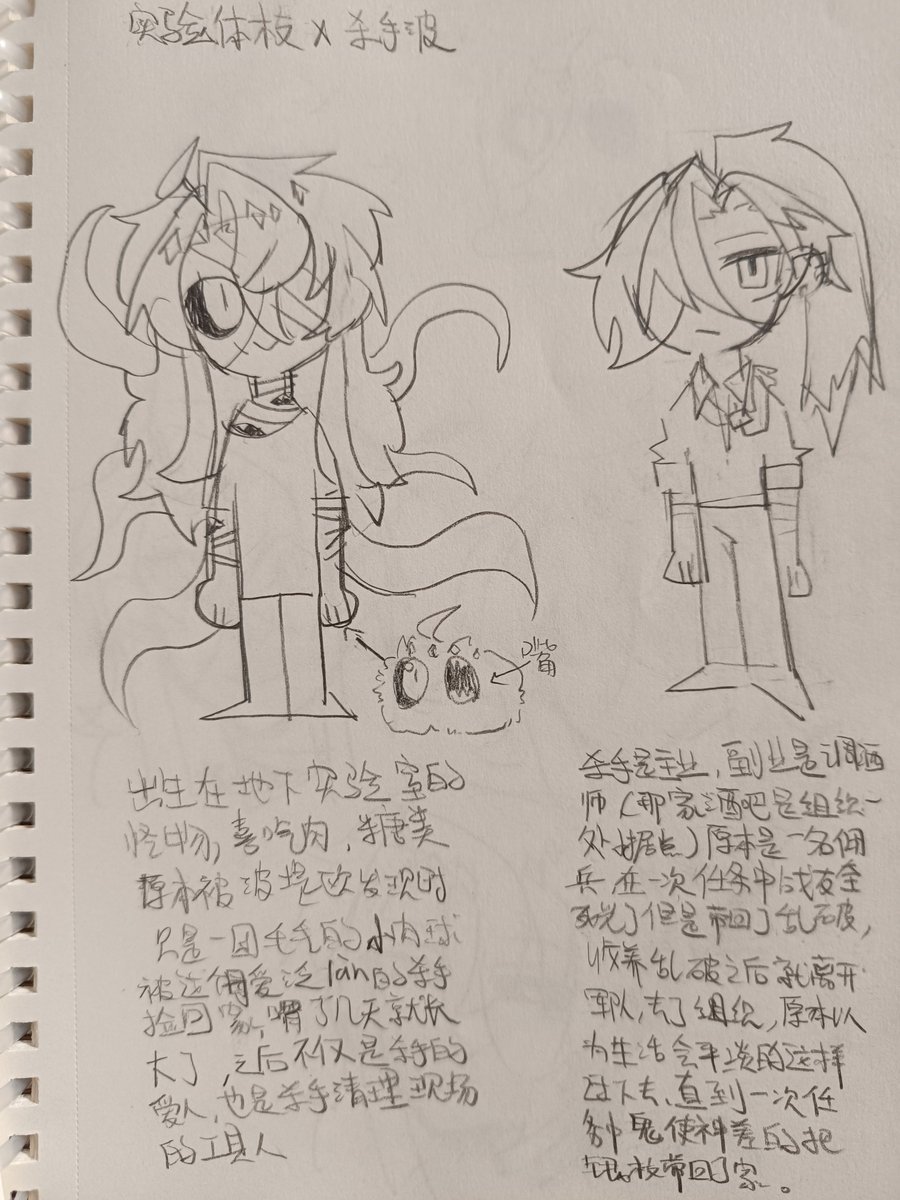 实验体枝 x 杀手波
嘴
出生在地下实验室的
怪物，喜吃肉，糖类
原本被波提欧发现时
只是一团毛毛的小肉球
被这个爱泛làn的杀手
捡回家，喂了几天就长
大了，之后不仅是杀手的
爱人，也是杀手清理现场
的工具人
杀手是主业，副业是调酒
师（那家酒吧是组织一
处据点）原本是一名佣
兵，在一次任务中战友全
死光了但是带回了乱破，
收养乱破之后就离开
军队，去了组织，原本以
为生活会平淡的这样
过下去，直到一次任
务中鬼使神差的把
枝带回了家。